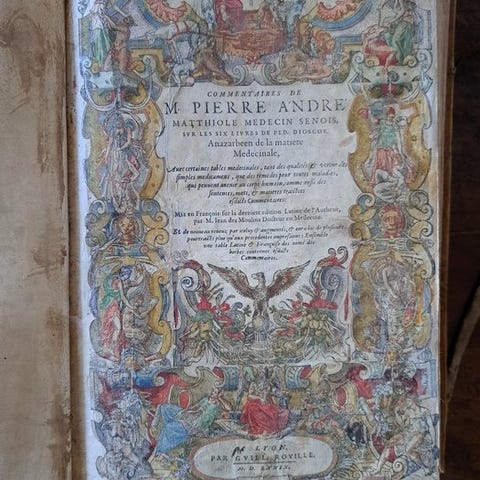 COMMENTAIRES DE
M. PIERRE ANDRE
MATTHIOLE MEDECIN SENOIS,
SVR LES SIX LIVRES DE PED. DIOSCOR.
Anazarbeen de la matiere
Medecinale,
Auec certaines tables medecinales, tant des qualités & vertus des
simples medicamens, que des remedes pour toutes maladies,
qui peuuent auenir au corps humain, comme aussi des
sentences, mots, & matieres traictees
esdicts Commentaires:
Mis en François sur la derniere edition Latine de l'Autheur,
par M. Iean des Moulins Docteur en Medecine.
Et de nouueau reueuz par iceluy & augmentés, & de plusieurs
pourtraicts plus qu'aux precedentes impressions: Ensemble
vne table Latine & Françoise des noms des
herbes contenues esdicts
Commentaires.
A LYON,
PAR GVILL. ROVILLE.
M. D. LXXIX.